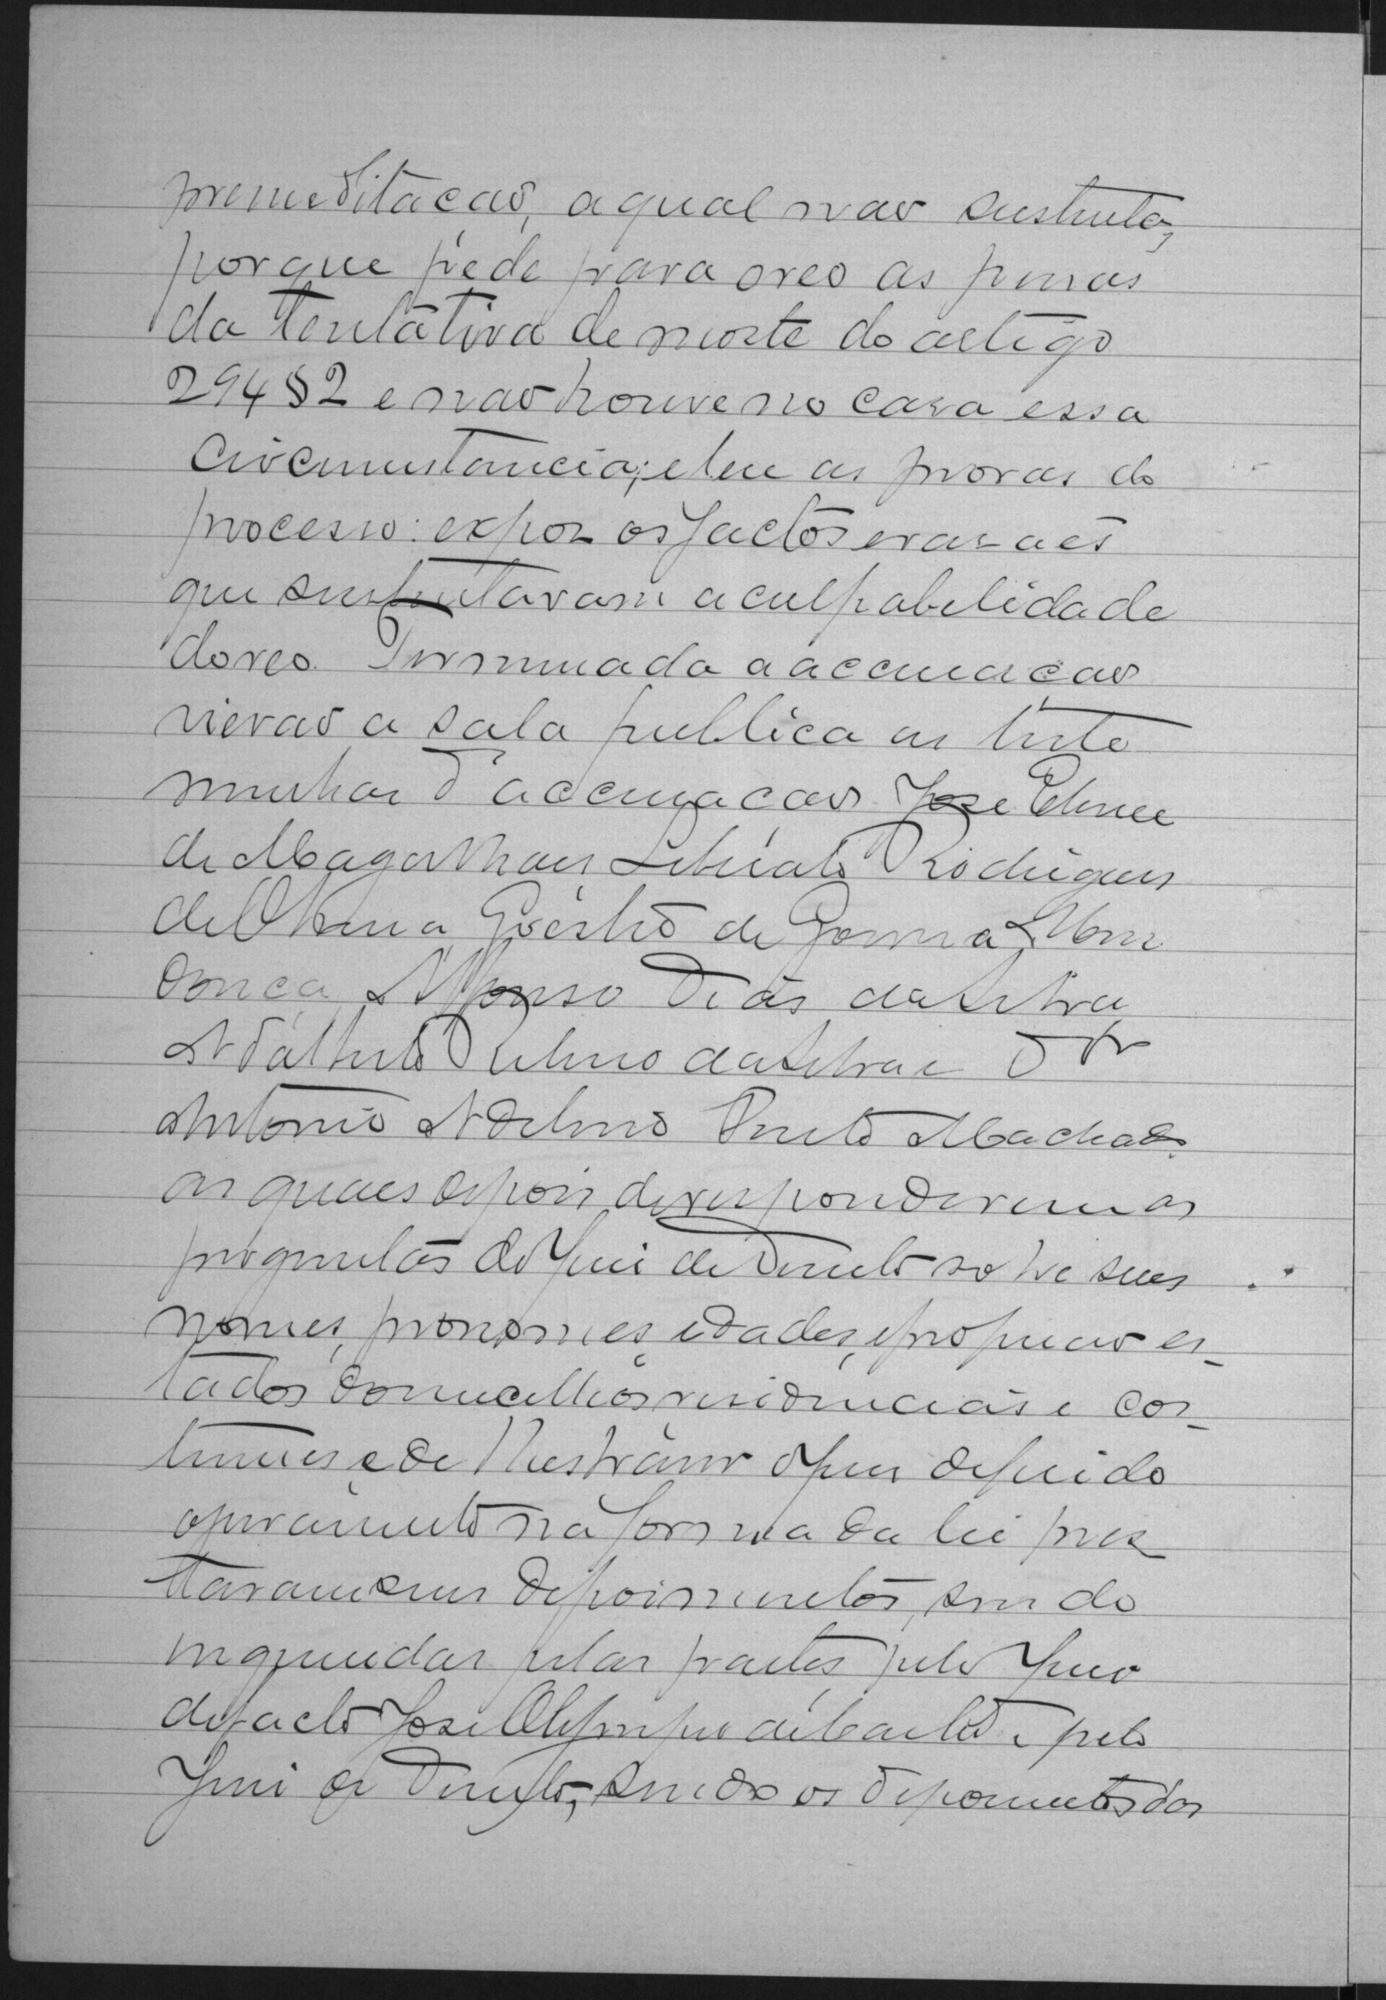 premeditação, a qual não sustenta,
porque pede para o reo as penas
da tentativa de morte do artigo
294 § 2 e não houve no caza essa
circumstancia; e leu as provas do
processo: expoz os factos e razaões
que sustentavam a culpabelidade
do reo. Terminada a accusação
vierão a sala publica as teste
munhas d'accusação José
de Magalhães, Liberato Rodrigues
de Oliveira de Gouveia Men
donça, Affonso Dias da Silva,
Adalberto Rubino da Silva e Dr
Antonio Adelino Pinto Machado,
as quaes depois de responderem as
preguntas do Juiz de Direito sobre seus
nomes, pronomes, edades, e profissão es-
tados domecilios residencias e cos-
tumes e de o juiz defirido
o juramento na forma da lei pres
taram seus depoimentos, sendo
inqueridas pelas partes, pelo Jurado
de facto José Olympio de Castro e pelo
Juiz de Direito, sendo os depoimentos das